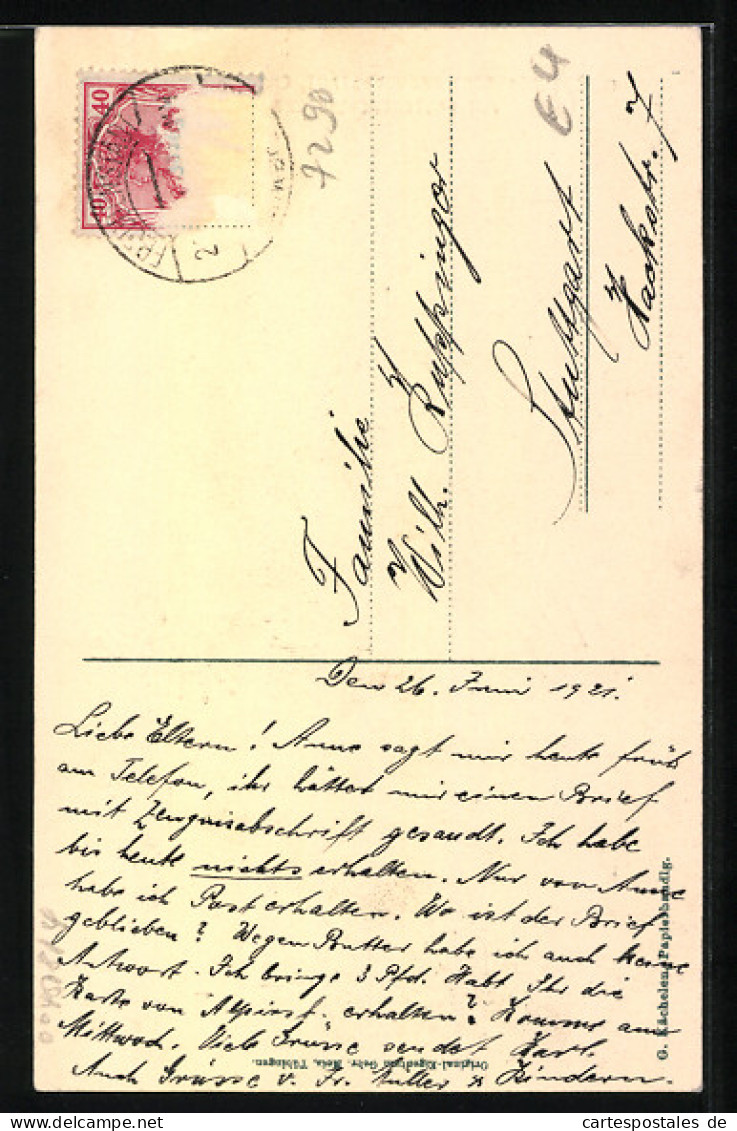 40 40
7290
E4
Familie
Wilh. Ruppinger
Stuttgart
Hackstr. 7
Den 26. Juni 1921.
Liebe Eltern! Anne sagt mir heute früh
am Telefon, ihr hättet mir einen Brief
mit Zeugnisabschrift gesandt. Ich habe
bis heute nichts erhalten. Nur von Anne
habe ich Post erhalten. Wo ist der Brief
geblieben? Wegen Butter habe ich auch keine
Antwort. Ich bringe 3 Pfd. Habt Ihr die
Karte von Alpirsb. erhalten? Komme am
Mittwoch. Viele Grüsse sendet Karl.
Auch Grüsse v. Fr. Müller & Kindern.
Original-Eigentum Gebr. Metz, Tübingen.
G. Kächelen, Papierhandlg.
Ansichtskarten-center.de - cartespostales.de